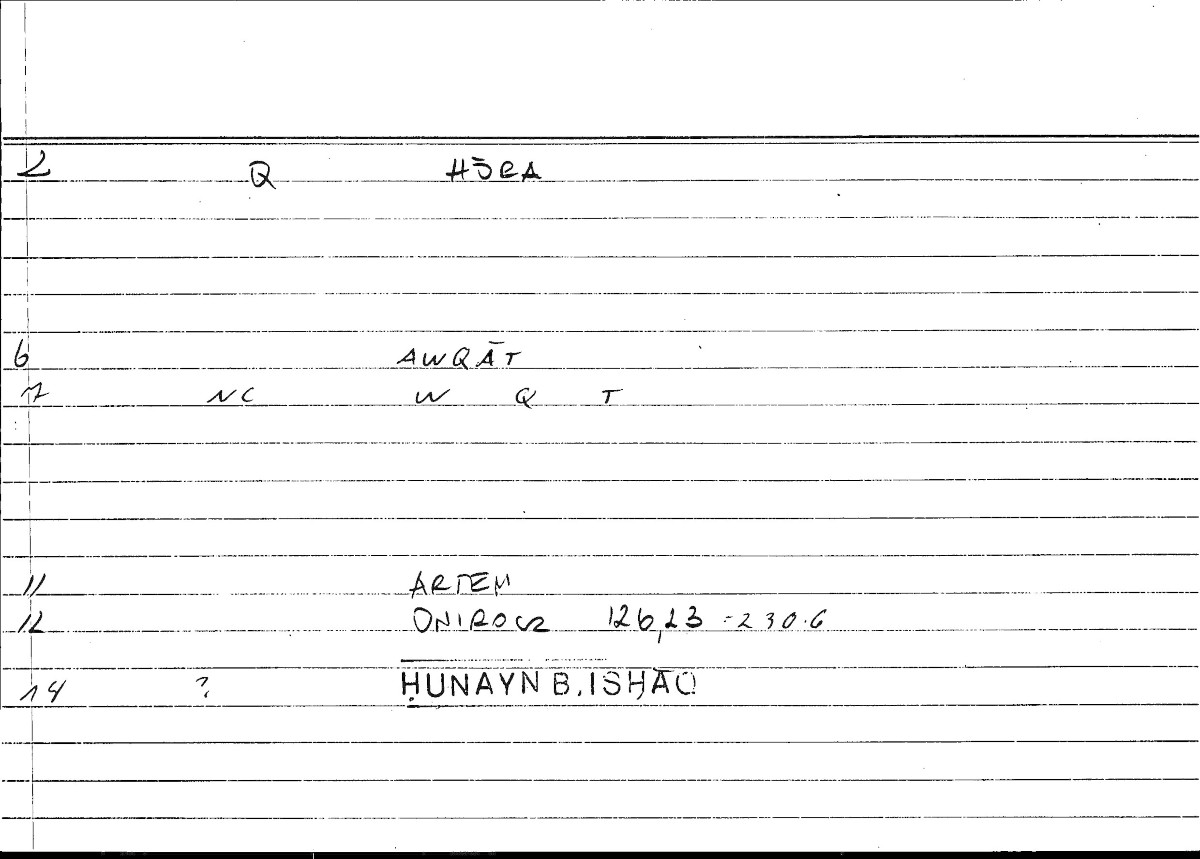 2 Q HŌRA
6 AWQĀT
7 NC W Q T
11 ARTEM
12 ONIROCR 126,23 = 230.6
14 ? ḤUNAYN B. ISḤĀQ